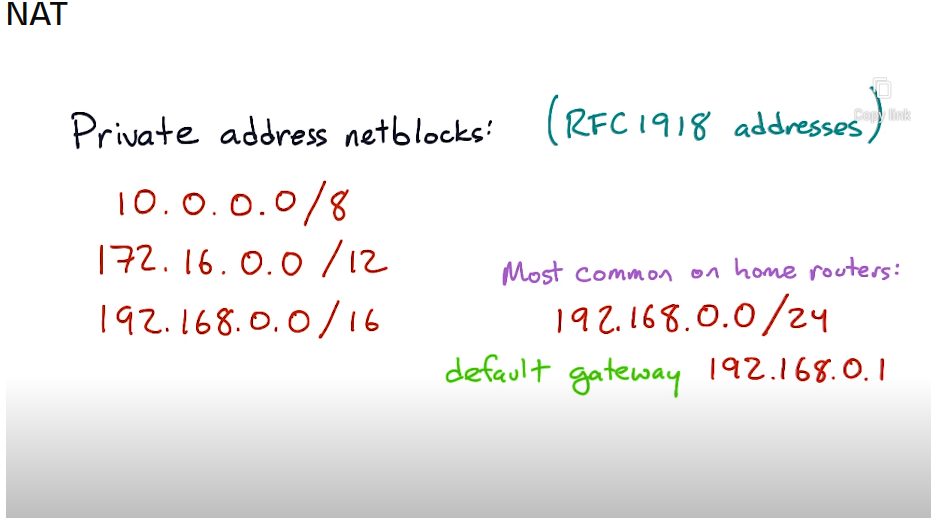 NAT
Private address netblocks: (RFC 1918 addresses)
Copy link
10.0.0.0/8
172.16.0.0/12
192.168.0.0/16
Most common on home routers:
192.168.0.0/24
default gateway 192.168.0.1